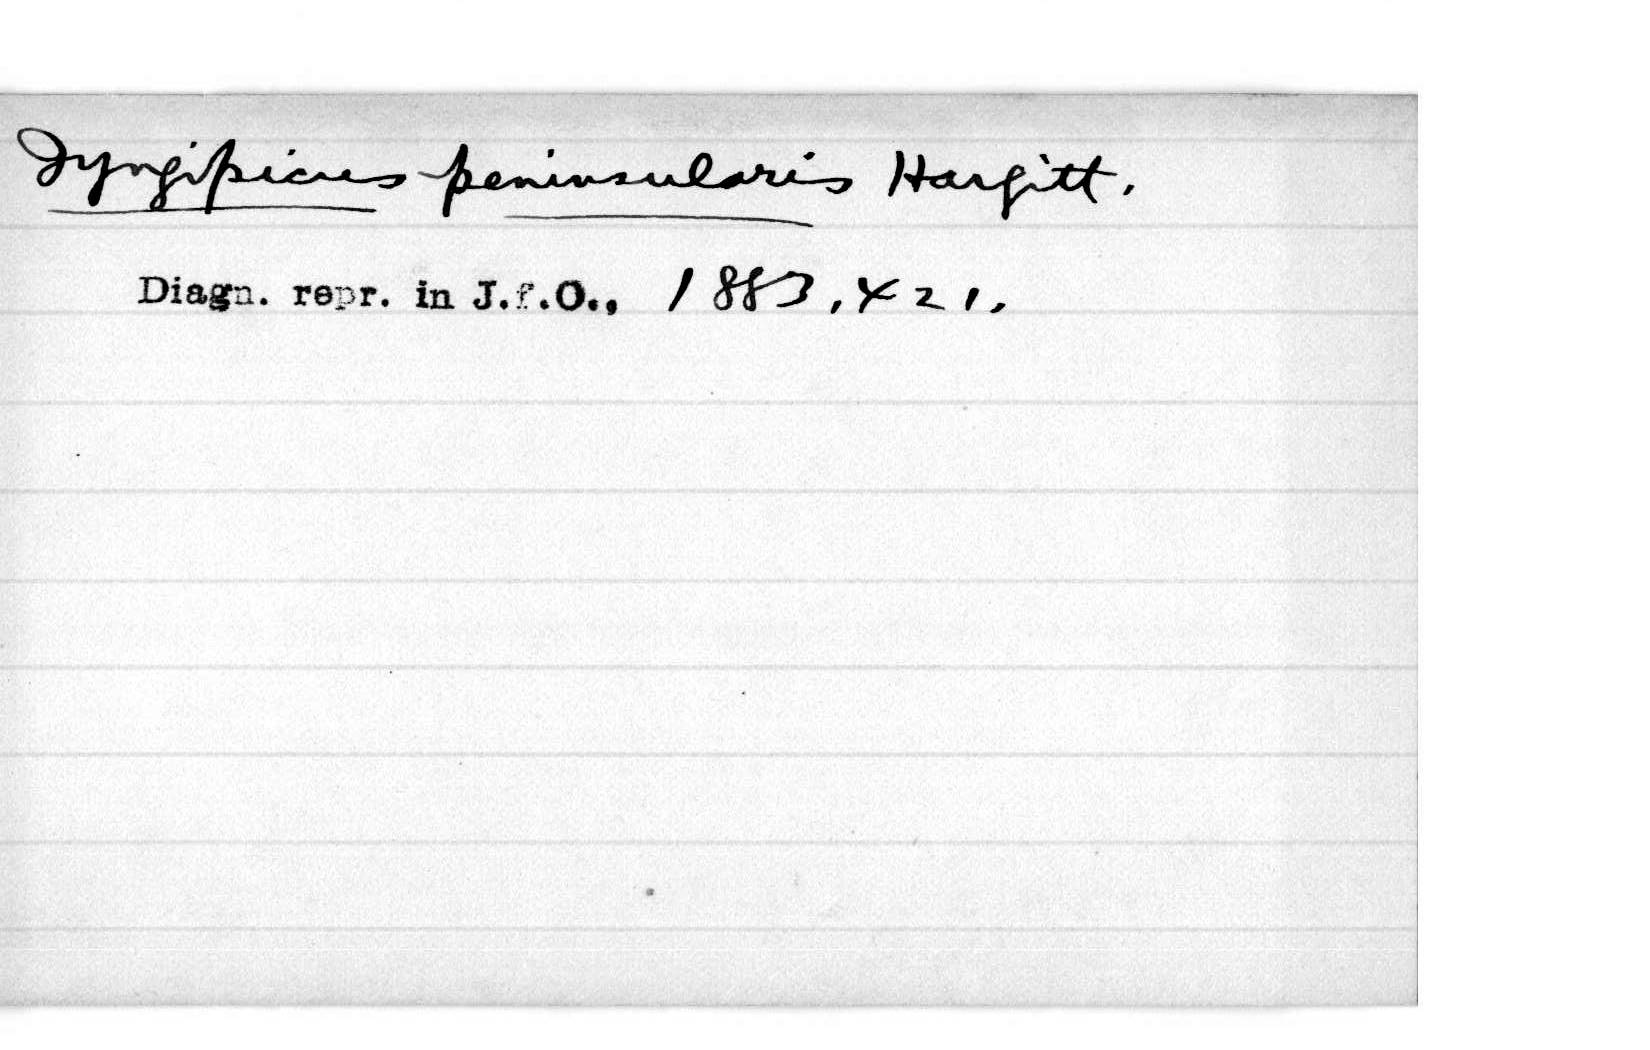 Iyngipicus peninsularis Hargitt.
Diagn. repr. in J.f.O., 1883, 421.